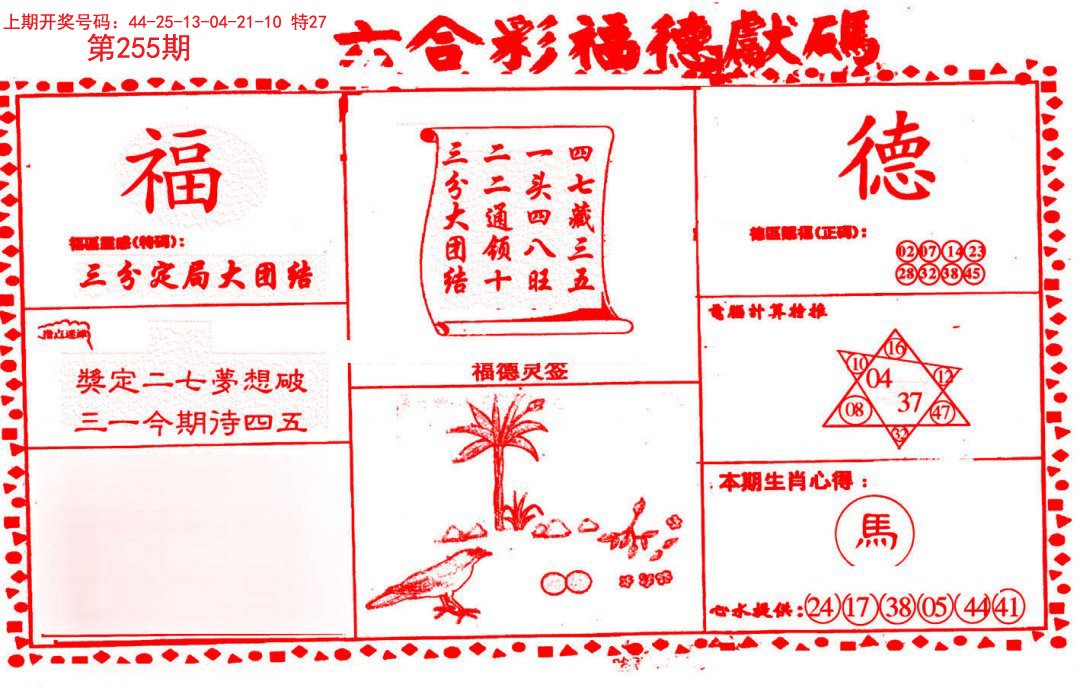 上期开奖号码：44-25-13-04-21-10 特27
第255期
六合彩福德獻碼
福
福區靈感(特碼):
三分定局大团结
指点迷津
獎定二七夢想破
三一今期待四五
四七藏三五
一头四八旺
二二通领十
三分大团结
福德灵签
德
德區賜福(正碼):
02 07 14 23
28 32 38 45
電腦計算特推
16
10
12
04
37
08
47
32
本期生肖心得：
馬
心水提供:24 17 38 05 44 41